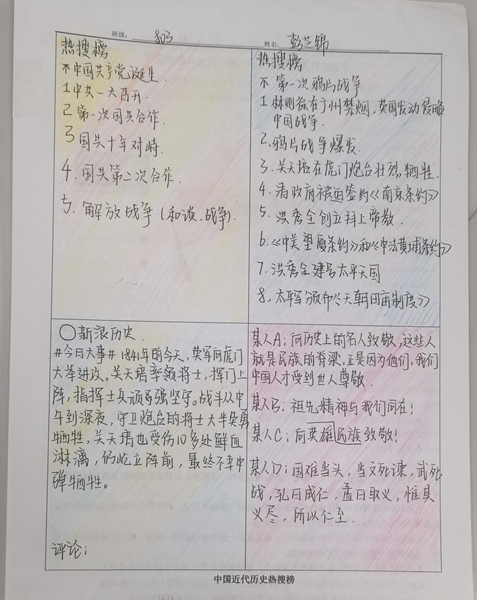 班级：803
姓名：彭芷锦
热搜榜
不中国共产党诞生.
1 中共一大召开.
2 第一次国共合作.
3 国共十年对峙.
4. 国共第二次合作.
5. 解放战争（和谈、战争）.
热搜榜
不 第一次鸦片战争
1 林则徐在广州禁烟，英国发动侵略
中国战争.
2. 鸦片战争爆发.
3. 关天培在虎门炮台壮烈牺牲.
4. 清政府被迫签约《南京条约》
5. 洪秀全创立拜上帝教.
6.《中美望厦条约》和《中法黄埔条约》
7. 洪秀全建号太平天国
8. 太平军颁布《天朝田亩制度》
〇新浪历史.
#今日大事# 1841年的今天，英军向虎门
大举进攻。关天培率领将士，挥门上
阵，指挥士兵顽强坚守。战斗从中
午到深夜，守卫炮台的将士大半英勇
牺牲，关天培也受伤10多处鲜血
淋漓，仍屹立阵前，最终不幸中
弹牺牲。
评论：
某人A：向历史上的名人致敬，这些人
就是民族的脊梁，正是因为他们，我们
中国人才受到世人尊敬.
某人B：祖先精神与我们同在！
某人C：向英雄民族致敬！
某人D：国难当头，当文死谏，武死
战，孔曰成仁，孟曰取义，惟其
义尽，所以仁至.
中国近代历史热搜榜